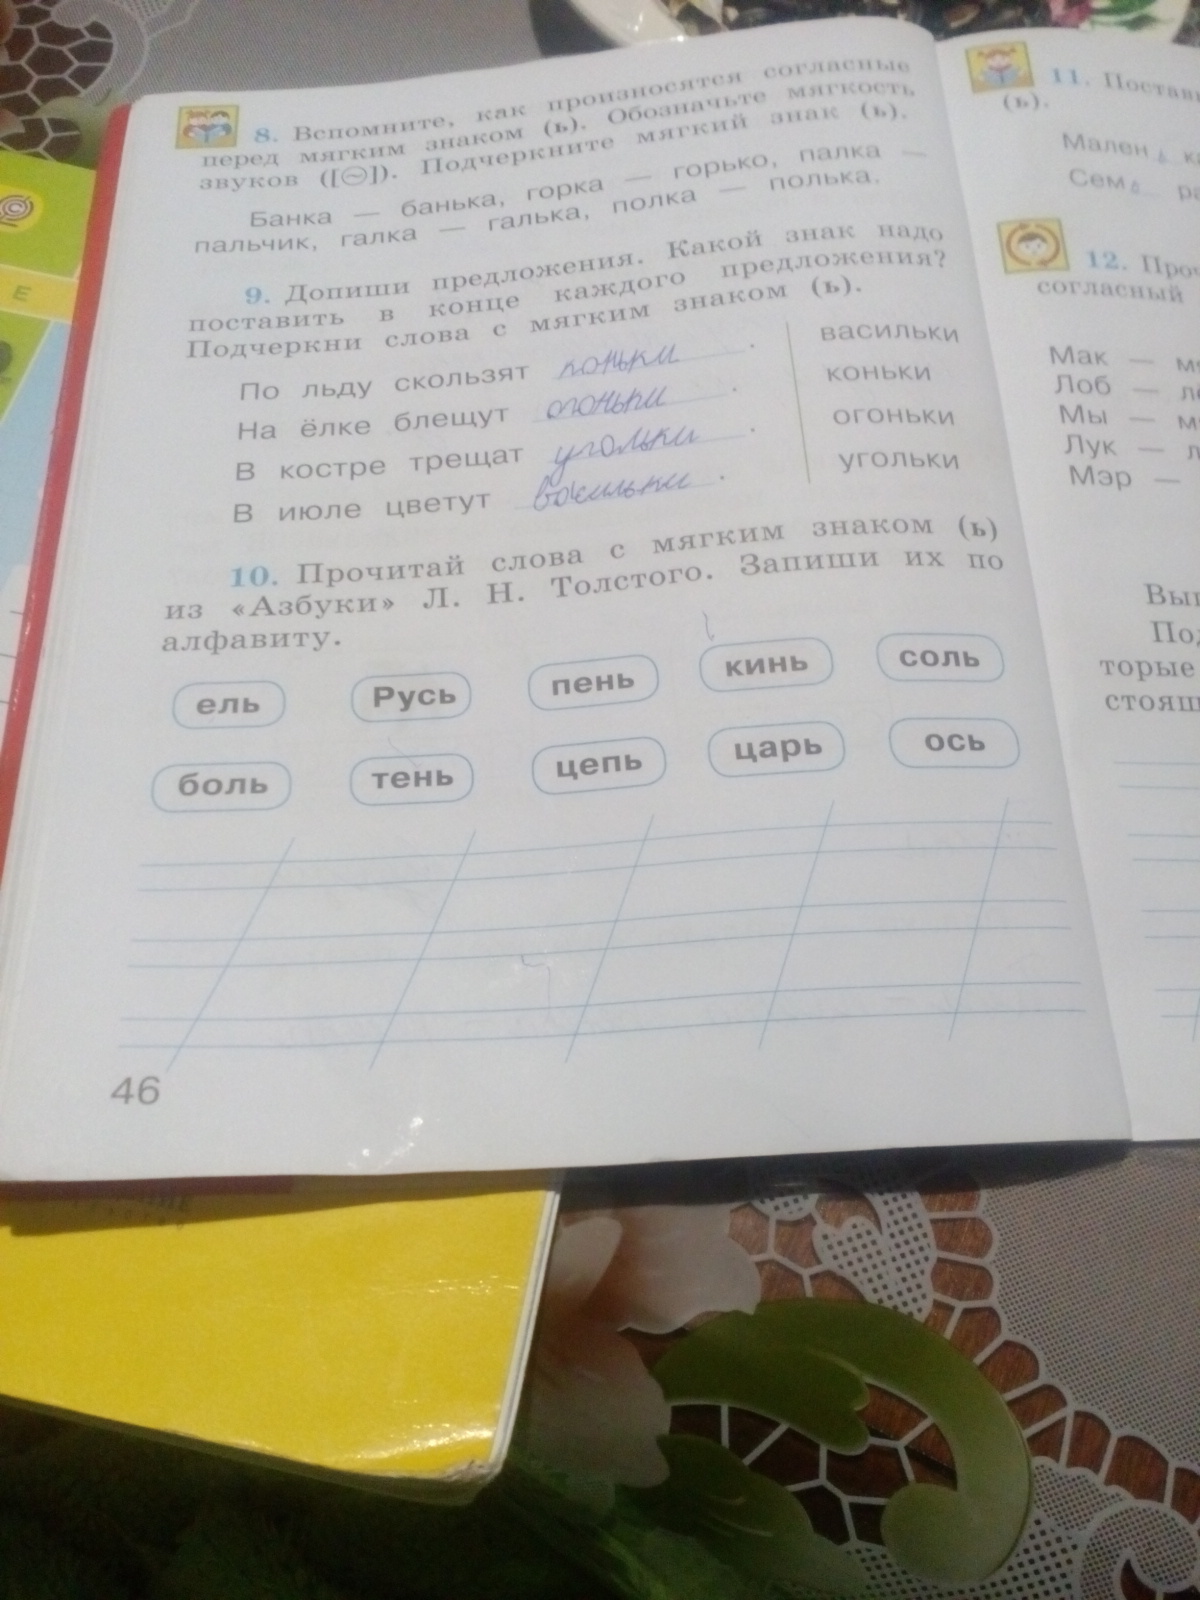 8. Вспомните, как произносятся согласные
перед мягким знаком (ь). Обозначьте мягкость
звуков ([~]). Подчеркните мягкий знак (ь).
Банка — банька, горка — горько, палка —
пальчик, галка — галька, полка — полька.
9. Допиши предложения. Какой знак надо
поставить в конце каждого предложения?
Подчеркни слова с мягким знаком (ь).
По льду скользят коньки .
На ёлке блещут огоньки .
В костре трещат угольки .
В июле цветут васильки .
васильки
коньки
огоньки
угольки
10. Прочитай слова с мягким знаком (ь)
из «Азбуки» Л. Н. Толстого. Запиши их по
алфавиту.
ель Русь пень кинь соль
боль тень цепь царь ось
46
11.
(ь).
Мален ь
Сем ь
12.
согласный
Мак —
Лоб —
Мы —
Лук —
Мэр —
торые
Е